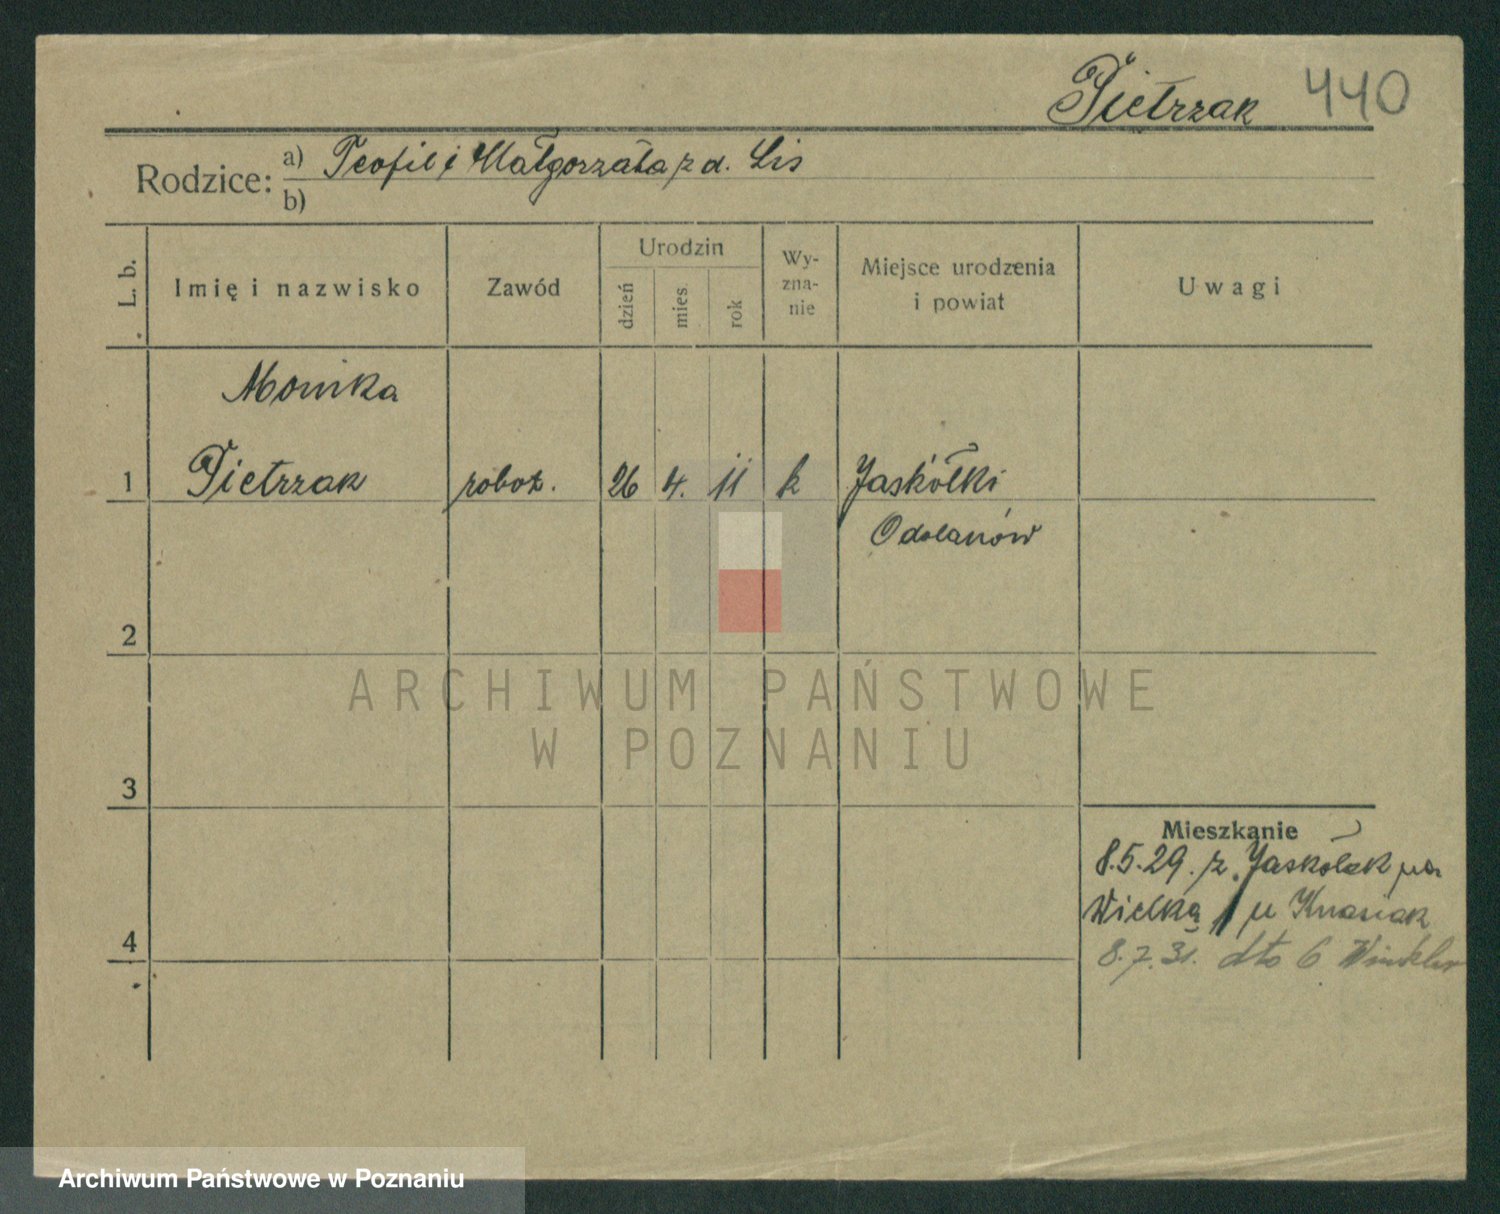 Pietrzak 440
Rodzice: a) Teofil i Małgorzata z d. Lis
b)
L. b. Imię i nazwisko Zawód Urodzin dzień mies. rok Wyznanie Miejsce urodzenia i powiat Uwagi
Monika
1 Pietrzak robot. 26 4. 11 k Jaskółki
Odolanów
2
ARCHIWUM PAŃSTWOWE
W POZNANIU
3
Mieszkanie
8.5.29. z Jaskółek na
Wielką 1 u Knasiak
4
8.7.31. dto 6 Winkler
Archiwum Państwowe w Poznaniu